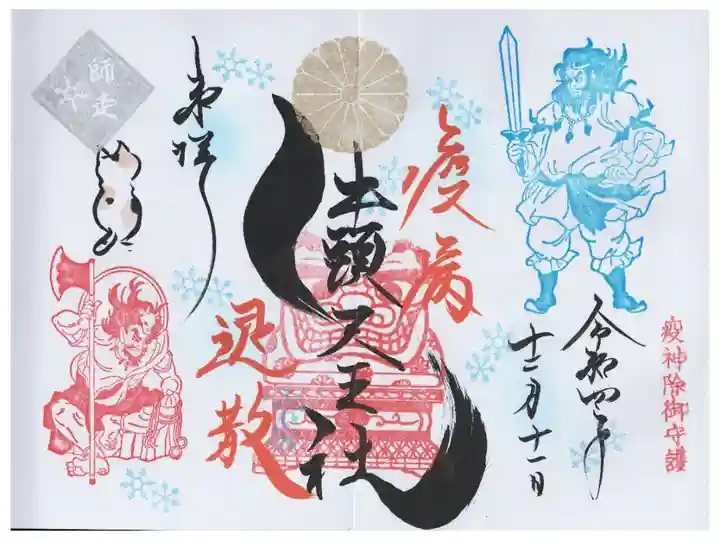 疫神除御守護
令和四年
十二月十一日
疫病
退散
牛頭天王社
奉拝
師走